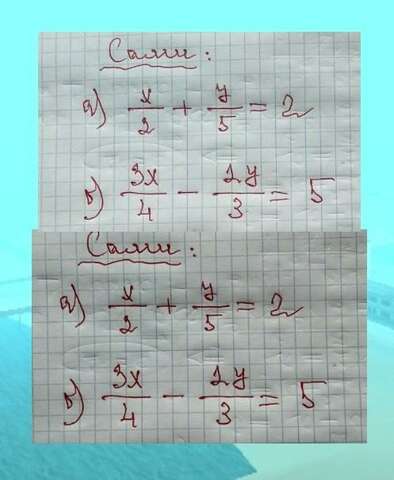 Сами:
а) x/2 + y/5 = 2
б) 3x/4 - 2y/3 = 5
Сами:
а) x/2 + y/5 = 2
б) 3x/4 - 2y/3 = 5